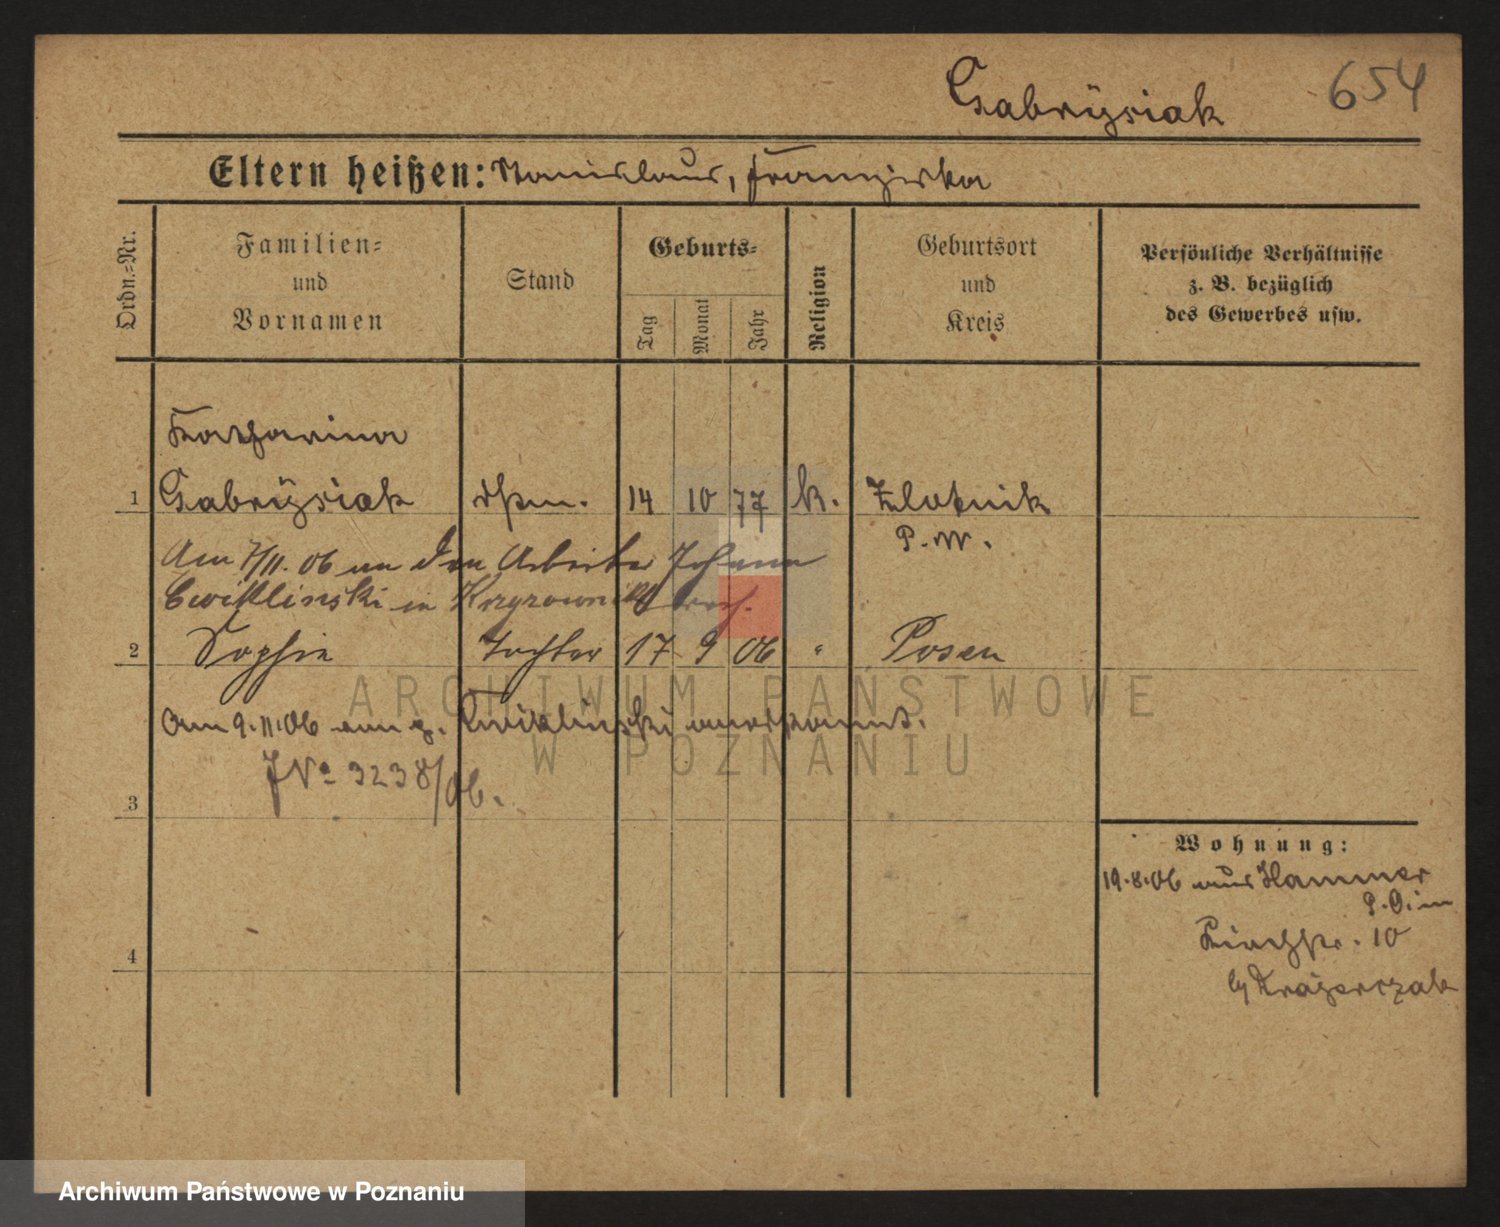 Gabrysiak 654
Eltern heißen: Stanislaus, Franziska
Ordn.-Nr.
Familien-
und
Vornamen
Stand
Geburts-
Tag
Monat
Jahr
Religion
Geburtsort
und
Kreis
Persönliche Verhältnisse
z. B. bezüglich
des Gewerbes usw.
Katharina
1 Gabrÿsiak 14 10 77 k. Zlotnik
P. W.
Am 7/11. 06 an den Arbeiter Johann
Cwiklinski in verh.
2 Sophie Tochter 17 9 06 " Posen
Am 9.11.06 von g. Cwiklinski anerkannt.
JNo 3238/06.
3
Wohnung:
19.8.06 aus Hammer
P. O. in
10
4
ARCHIWUM PAŃSTWOWE
W POZNANIU
Archiwum Państwowe w Poznaniu